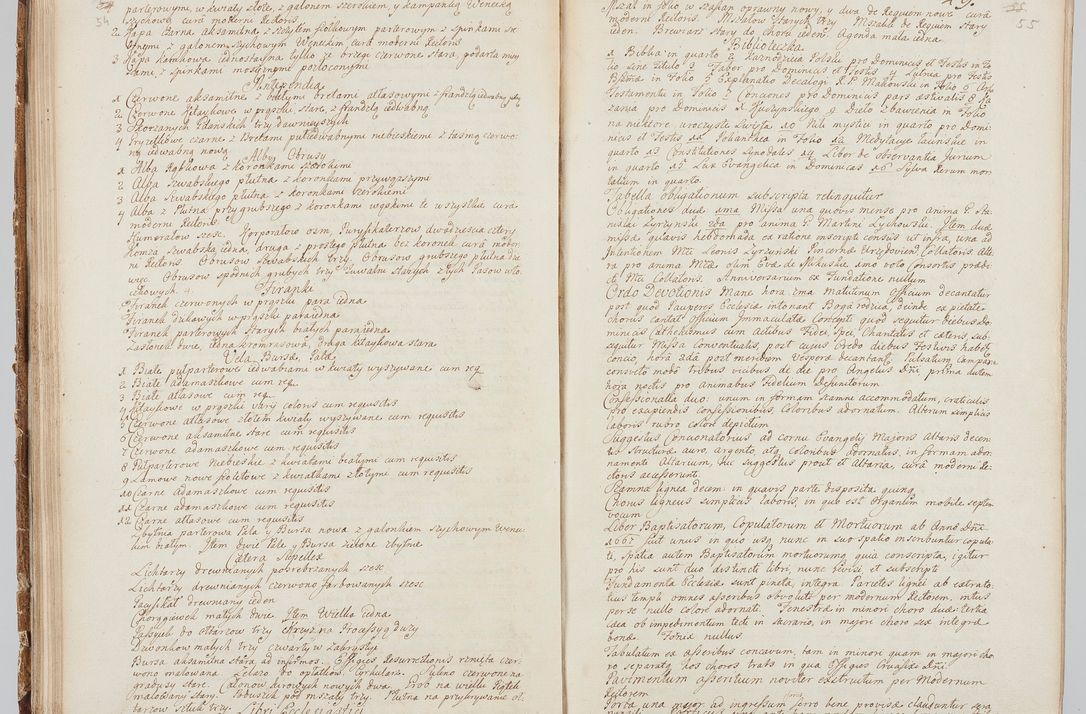 54
parterowymi, w kwiaty złote, z galonem szerokiem, y kampanką Wenecką
szychową curâ moderni Rectoris
2 Kapa Czarna aksamitna z szczytem fiołkowym parterowym z spinkami sre
brnymi z galonem szychowym Weneckim, curâ moderni Rectoris
3 Kapa Kamkowa iednostayna tylko ze brzegi czerwone stara, podarta myszy
kami, z spinkami mosiężnymi pozłoconymi
Antependia
1 Czerwone aksamitne z białymi bretami atłasowymi z frandzlą iedwabną
2 Czerwone Kitaykowe w prążki stare z frandzlą iedwabną
3 Skorzanych Gdanskich trzy dawnieyszych
4 Tryzetkowe czarne z Bretami pułiedwabnymi niebieskiemi z taśmą czerwo
ną iedwabną nową
Alby Obrusy
1 Alba Rąbkowa z koronkami szerokiemi
2 Alba Szwabskiego płutna z koronkami przywęzszymi
3 Alba Szwabskiego płutna z koronkami szerokiemi
4 Alba z Płutna przygrubszego z koronkami wąskimi te wszystkie curâ
moderni Rectoris
Humerałow szesc, Korporałow osm, Puryfikaterzow dwadziescia cztery
Komza szwabska iedna, druga z prostego płutna bez koronek curâ moder
ni Rectoris Obrusow Szwabskich trzy, Obrusow grubszego płutna dzie
więć, Obrusow spodnich grubych trzy, Tuwalni starych złych Pasow wło
czkowych 4.
Firanki
Firanek czerwonych w prążki para iedna
Firanek dukawych w prążki para iedna
Firanek parterowych starych białych para iedna
Zasłonek dwie, iedna kromrasowa, druga kitaykowa stara
Vela Bursæ, Pallæ
1 Białe pulparterowe iedwabiami w kwiaty wyszywane cum req
2 Białe adamaszkowe cum req
3 Białe atłasowe cum req
4 Kitaykowe w prążki varij coloris cum requisitis
5 Czerwone atłasowe złotem kwiaty wyszywane cum requisitis
6 Czerwone aksamitne stare cum requisitis
7 Czerwone adamaszkowe cum requisitis
8 Pulparterowe Niebieskie z kwiatami białymi cum requisitis
9 Lamowe nowe fioletowe z kwiatkami złotymi cum requisitis
10 Czarne Adamaszkowe cum requisitis
11 Czarne adamaszkowe cum requisitis
12 Czarne atłasowe cum requisitis
Zbytnia parterowa Palla y Bursa nowa z galonkiem szychowym Wenec
kiem białym. Item dwie Palle y Bursa zielone zbytnie
Cætera Supellex
Lichtarzy drewnianych posrebrzanych szesc
Lichtarzy drewnianych czerwono farbowanych szesc
Pacyfikał drewniany ieden
Chorągiewek małych dwie Item Wielka iedna
Passyiek do ołtarzow trzy Skrzyżna Processyą duży
Dzwonkow małych trzy czwarty w zakrystyi
Bursa aksamitna stara ad infirmos. Effigies Resurrectionis rznięta czer
wono malowana. Zelazo do opłatkow. Cyrkularz. Sukno czerwone na
gradusy stare. Całonek kirowych nowych dwa Grob na wielki Piątek
malowany stary Poduszek pod mszały trzy. Płutna na przykrywanie oł
tarzow sztuk trzy. Libri Ecclesiastici
55
Mszał in folio w szafian oprawny nowy, y dwa de Requiem nowe curâ
moderni Rectoris. Mszałow Starych trzy Mszałek de Requiem Stary
ieden. Brewiarz stary do choru ieden. Agenda mała iedna.
Biblioteczka
1 Biblia in quarto 2 Kaznodzieia Polski pro Dominicis et Festis in Fo
lio sine titulo 3 Faber pro Dominicis et Festis 4 Lubnia pro Festis
in Folio 5 Explanatio Decalogi R. P. Makowski in Folio 6
Testamentu in Folio 7 Conciones pro Dominicis pars æstivalis 8 Ka
zania pro Dominicis X Juszynskiego 9 Dzieło Zbawienia in Folio
na niektore uroczyste Swięta 10 Stili mystici in quarto pro Domi
nicis et Festis 11 Polianthea in Folio 12 Medytacye łacińskie in
quarto 13 Constitutiones Synodales 14 Liber de observantia Jurium
in quarto 15 Lux Evangelica in Dominicas 16 Sylva Rerum mor
talium in quarto.
Tabella obligationum subscripta relinquitur
Obligationes duæ 1ma Missa una quovis mense pro anima P. Sta
nislai Łyrzynski 2da pro anima P. Martini Lychowski. Item duæ
missæ quavis hebdomada ex ratione inscripti census ut infra, una ad
Intentionem Mci Leonis Łyrzynski Pincernæ Collatoris. alte
ra pro anima Mcæ olim Evæ de primo voto Consortis præd:
cti Mci Collatoris. Anniversarium ex Fundatione nullum
Ordo Devotionis Mane hora 7ma Matutinum Officium decantatur
post quod Pauperes Ecclesiæ intonant Boga rodzica, deinde ex pietate
chorus cantat Officium Immaculatæ Concept: quod sequitur diebus Do
minicis cathechismus cum actibus Fidei, Spei, Charitatis et cæteris, sub
sequitur Missa Conventualis, post cujus Credo diebus Festivis habet
concio, hora 2dâ post meridiem Vesperæ decantant. Pulsatum campana
consveto modo tribus vicibus de die pro Angelus Dni prima autem
hora noctis pro animabus Fidelium Defunctorum
Confessionalia duo: unum in formam scamni accommodatum, craticulis
pro exaipendis confessionibus coloribus adornatum. Alterum simplicis
laboris rubro colore depictum
Suggestus Concionatorius ad cornu Evangelij Majoris Altaris decen
tis Structuræ auro, argento, atq coloribus adornatus, in formam ador
namenti Altarium, hic suggestus prout et altaria, curâ moderni Re
ctoris accesserunt
Scamna lignea decem in quavis parte disposita quinq
Chorus ligneus simplicis laboris, in quo est Organum mobile septem
vocum
Libri Baptisatorum, Copulatorum et Mortuorum ab Anno Dni
1667 sunt unus in quo usq nunc in suo spatio inscribuntur copula
ti, spatia autem Baptisatorum mortuorumq quia conscripta, igitur
pro his sunt duo distincti libri, nunc revisi et subscripti
Fundamenta Ecclesiæ sunt pineta, integra. Parietes lignei ab extrato
tius templi omnes asseribus obvoluti per modernum Rectorem, intus
per se nullo colore adornati. Fenestræ in minori choro duæ tertia
idea ob impedimentum tecti in sacrario, in majori choro sex integræ
bonæ. Fornix nullus
Tabulatum ex asseribus concavum, tam in minori quam in majori cho
ro separata hos choros trabs in qua Effigies Crucifixi Dni.
Pavimentum asserticum noviter exstructum per Modernum
Rectorem
Porta una major ad ingressum ferro bene provisa clauduntur sera